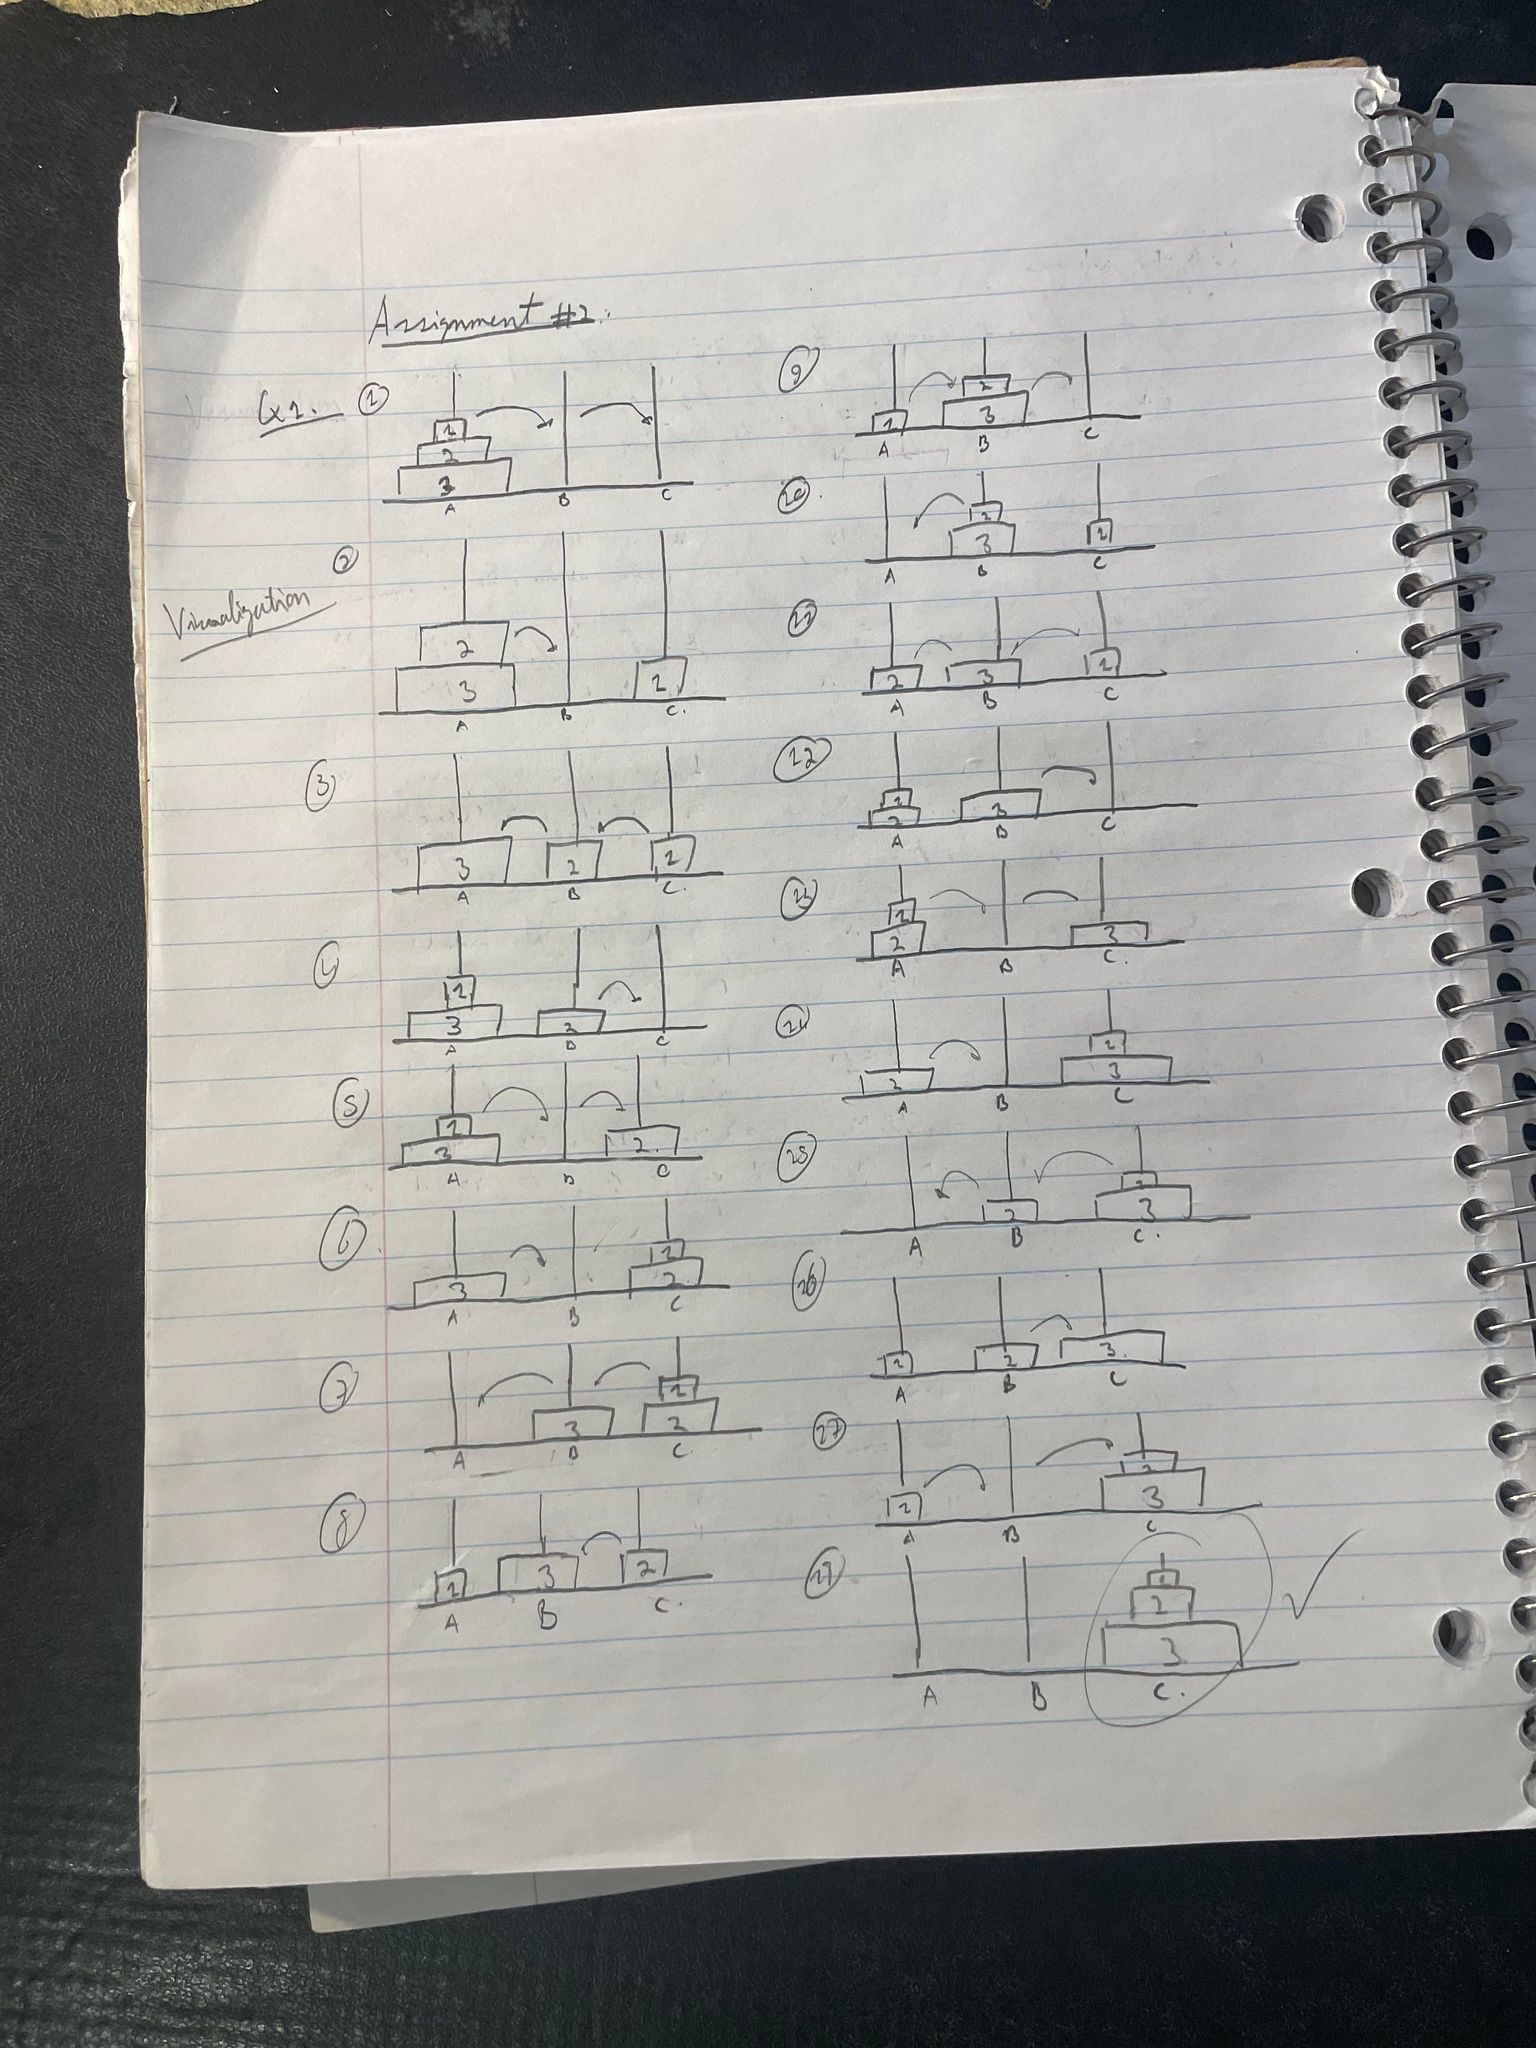 Assignment #2.
Q1.
Visualization
①
1
2
3
A B C
②
2
3 1
A B C.
③
3 2 1
A B C.
④
1
3 2
A B C
⑤
1
3 2.
A B C
⑥
1
3 2
A B C
⑦
1
3 2
A B C
⑧
1 3 2
A B C.
⑨
2
1 3
A B C
10.
2
3 1
A B C
11
2 3 1
A B C
12
1
2 3
A B C
13
1
2 3
A B C.
14
1
2 3
A B C
15
1
2 3
A B C.
16
1 2 3.
A B C
17
2
1 3
A B C
1
2
3
A B C.